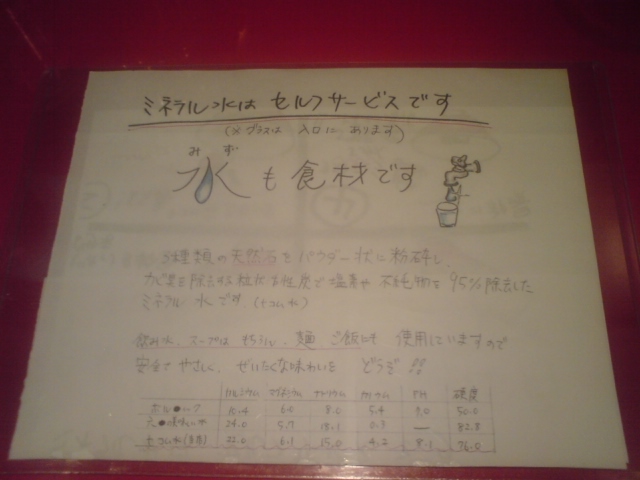 ミネラル水は セルフサービスです
(※グラスは 入口に あります)
みず
水も食材です
5種類の天然石をパウダー状に粉砕し、
を除去する粒状活性炭で塩素や 不純物を 95%除去した
ミネラル 水です。
飲み水、スープは もちろん、麺 ご飯にも 使用していますので
安全で やさしく、ぜいたくな味わいを どうぞ!!
カルシウム マグネシウム ナトリウム カリウム PH 硬度
10.4 6.0 8.0 5.4 7.0 50.0
24.0 5.7 18.1 0.3 — 82.8
22.0 6.1 15.0 4.2 8.1 76.0